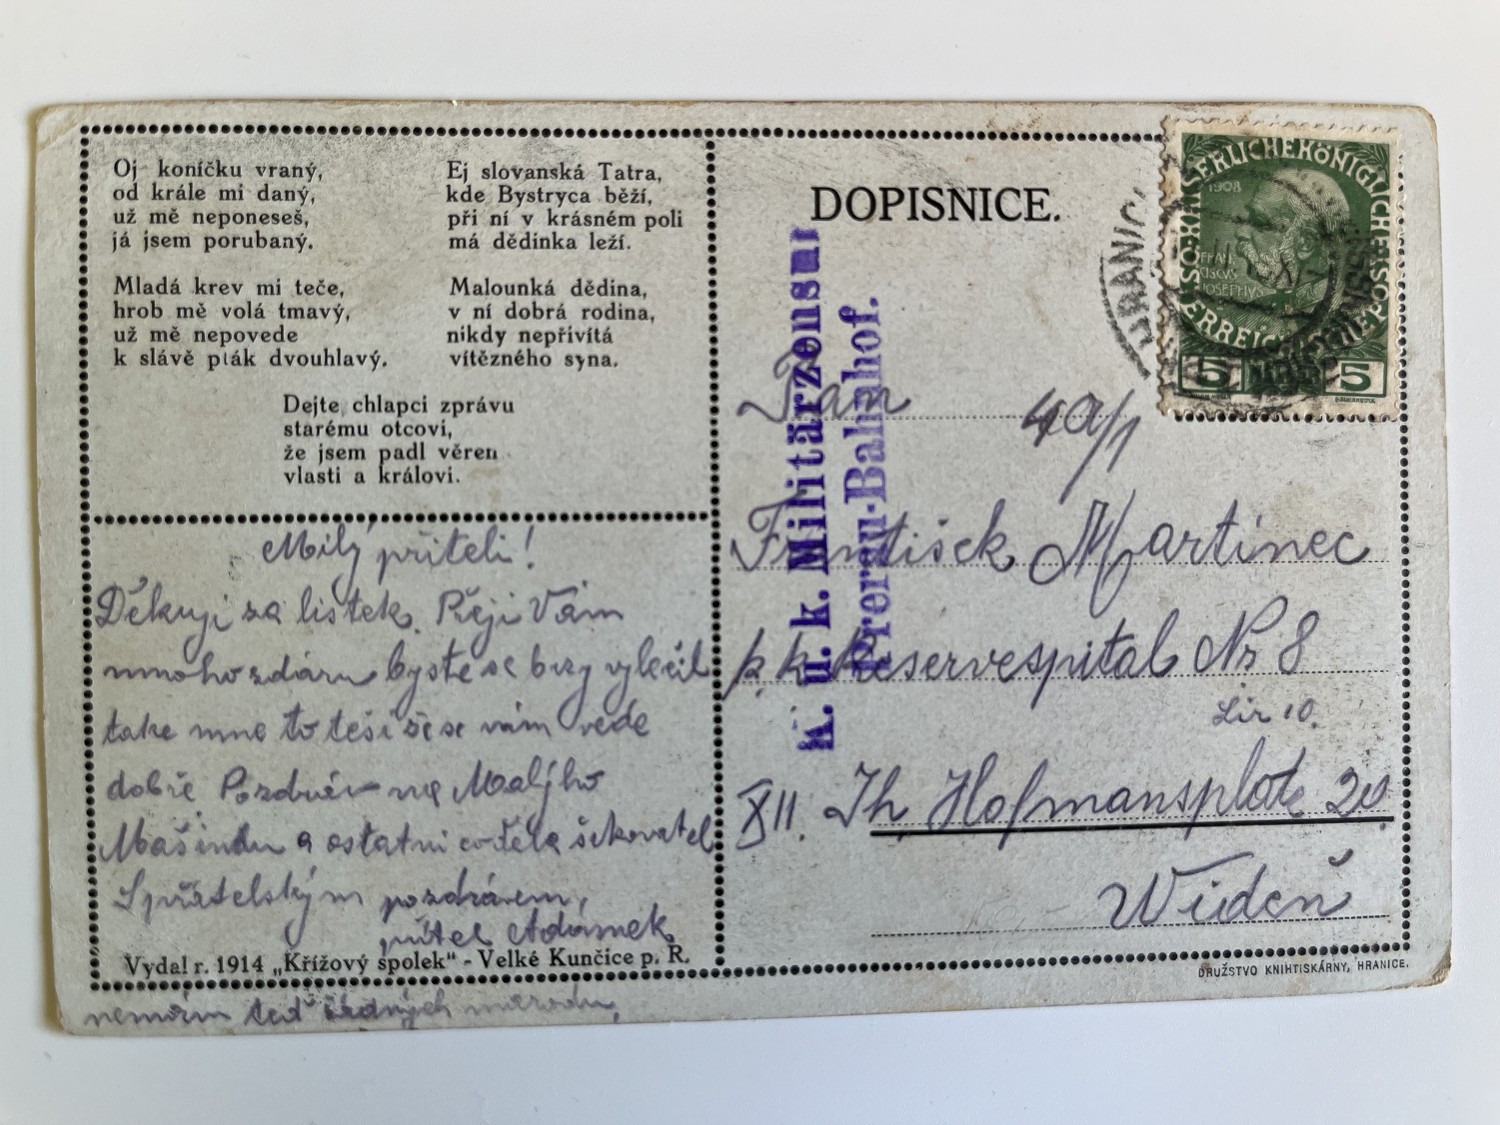 Oj koníčku vraný,
od krále mi daný,
už mě neponeseš,
já jsem porubaný.
Mladá krev mi teče,
hrob mě volá tmavý,
už mě nepovede
k slávě pták dvouhlavý.
Ej slovanská Tatra,
kde Bystryca běží,
při ní v krásném poli
má dědinka leží.
Malounká dědina,
v ní dobrá rodina,
nikdy nepřivítá
vítězného syna.
Dejte chlapci zprávu
starému otcovi,
že jsem padl věren
vlasti a královi.
Milý příteli!
Děkuji za lístek. Přeji Vám
mnoho zdaru byste se brzy vyléčil
take mne to těší že se vám vede
dobře Pozdrav na Malýho
a ostatni
Spřátelským pozdravem,
přítel Adámek
Vydal r. 1914 „Křížový spolek“ - Velké Kunčice p. R.
nemám teď žádných
DOPISNICE.
K. u. k. Militärzensur
Prerau-Bahnhof.
KAISERLICHE KÖNIGLICHE ÖSTERREICHISCHE POST
1908
FRAN
CISCVS
JOSEPHVS
5 5
HRANIC
Pan
František Martinec
k. k. Reservespital Nr 8
10.
XII. Th. Hofmansplatz
Wideň
DRUŽSTVO KNIHTISKÁRNY, HRANICE.